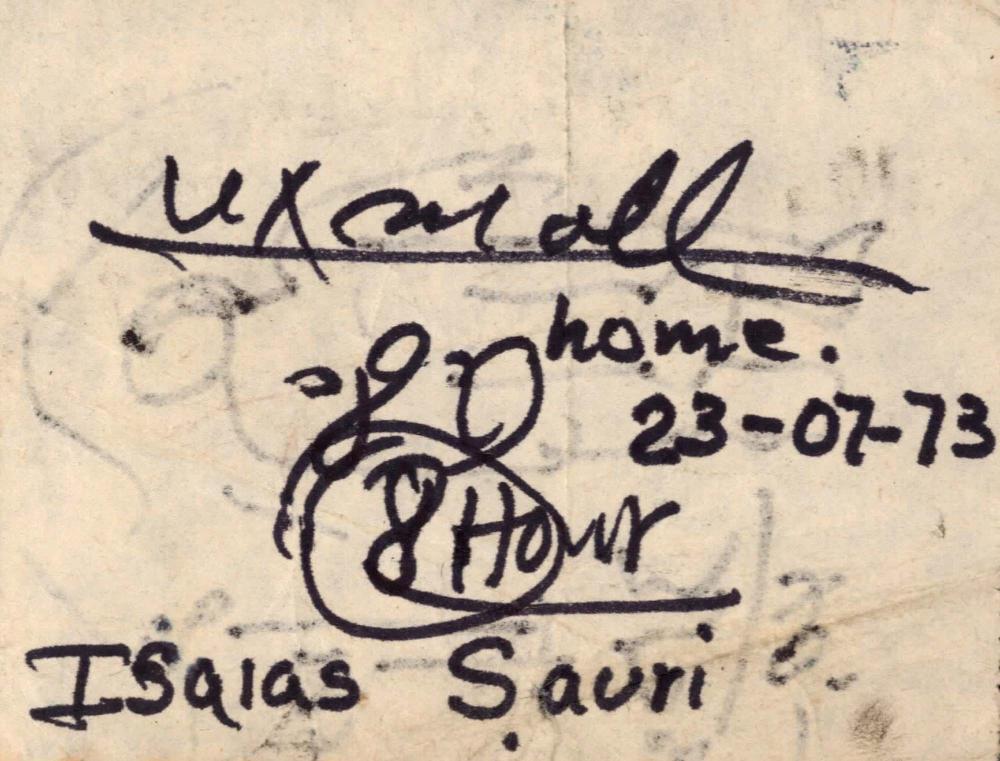 uxmall
home.
23-07-73
8 Hour
Isaias Sauri